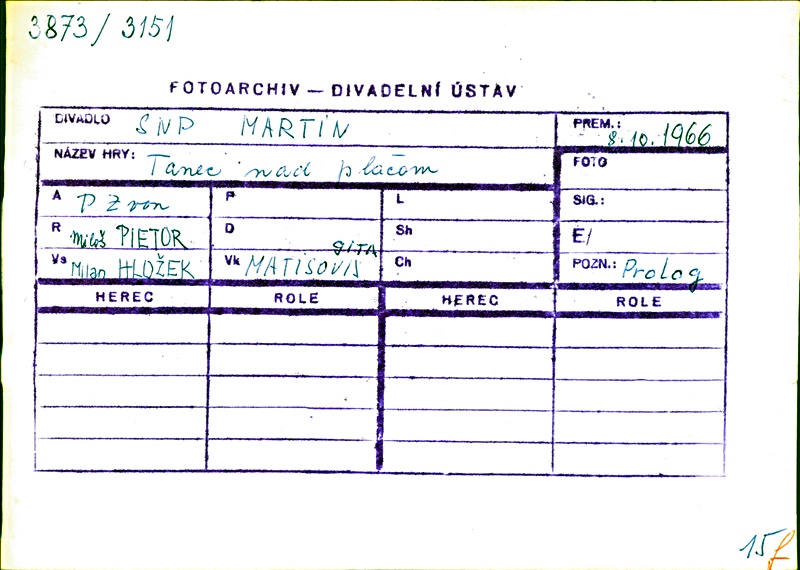 3873/3151
FOTOARCHIV — DIVADELNÍ ÚSTAV
DIVADLO SNP MARTIN
PREM.: 8.10.1966
NÁZEV HRY: Tanec nad plačom
FOTO
A P Zvon
P
L
SIG.:
R Miloš PIETOR
D
Sh
E/
Vs Milan HLOŽEK
Vk MATISOVIS GITA
Ch
POZN.: Prolog
HEREC ROLE HEREC ROLE
15f